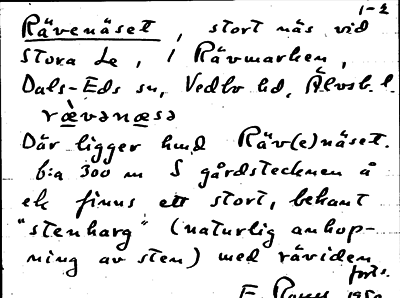 1-2
Rävenäset, stort näs vid
Stora Le, i Rävmarken,
Dals-Eds sn, Vedbo hd, Älvsb. l.
rævənæsə
Där ligger hmd Räv(e)näset.
b:a 300 m S gårdstecknen å
ek finns ett stort, bekant
"stenharg" (naturlig anhop-
ning av sten) med räviden
forts.
E.